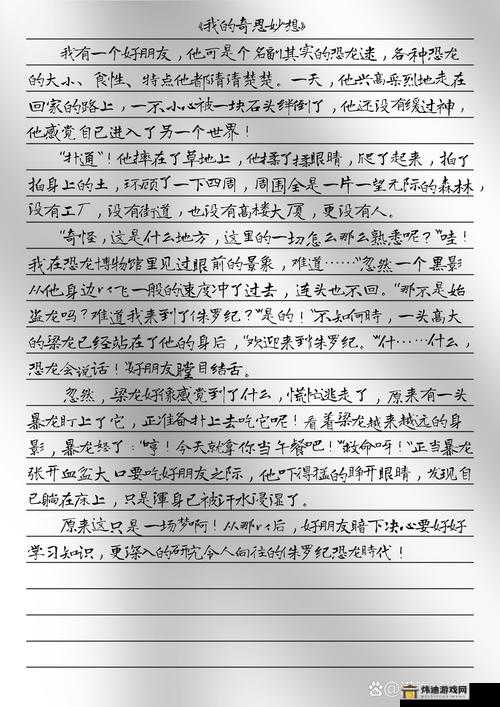 《我的奇思妙想》
我有一个好朋友，他可是个名副其实的恐龙迷，各种恐龙
的大小、食性、特点他都清清楚楚。一天，他兴高采烈地走在
回家的路上，一不小心被一块石头绊倒了，他还没有缓过神，
他感觉自己进入了另一个世界！
“扑通”！他摔在了草地上，他揉了揉眼睛，爬了起来，拍了
拍身上的土，环顾了一下四周，周围全是一片一望无际的森林，
没有工厂，没有街道，也没有高楼大厦，更没有人。
“奇怪，这是什么地方，这里的一切怎么那么熟悉呢？”哇！
我在恐龙博物馆里见过眼前的景象，难道……“忽然一个黑影
从他身边以飞一般的速度冲了过去，连头也不回。“那不是始
盗龙吗？难道我来到了侏罗纪？”是的！“不知何時，一头高大
的梁龙已经站在了他的身后，“欢迎来到侏罗纪。”什……什么，
恐龙会说话！”好朋友瞠目结舌。
忽然，梁龙好像感觉到了什么，慌忙逃走了，原来有一头
暴龙盯上了它，正准备扑上去吃它呢！看着梁龙越来越远的身
影，暴龙怒了：“哼！今天就拿你当午餐吧！”“救命呀！”正当暴龙
张开血盆大口要吃好朋友之际，他吓得猛的睁开眼睛，发现自
己躺在床上，只是渾身已被汗水浸湿了。
原来这只是一场梦啊！从那以后，好朋友暗下决心要好好
学习知识，更深入的研究令人向往的侏罗纪恐龙時代！
炜迪游戏网